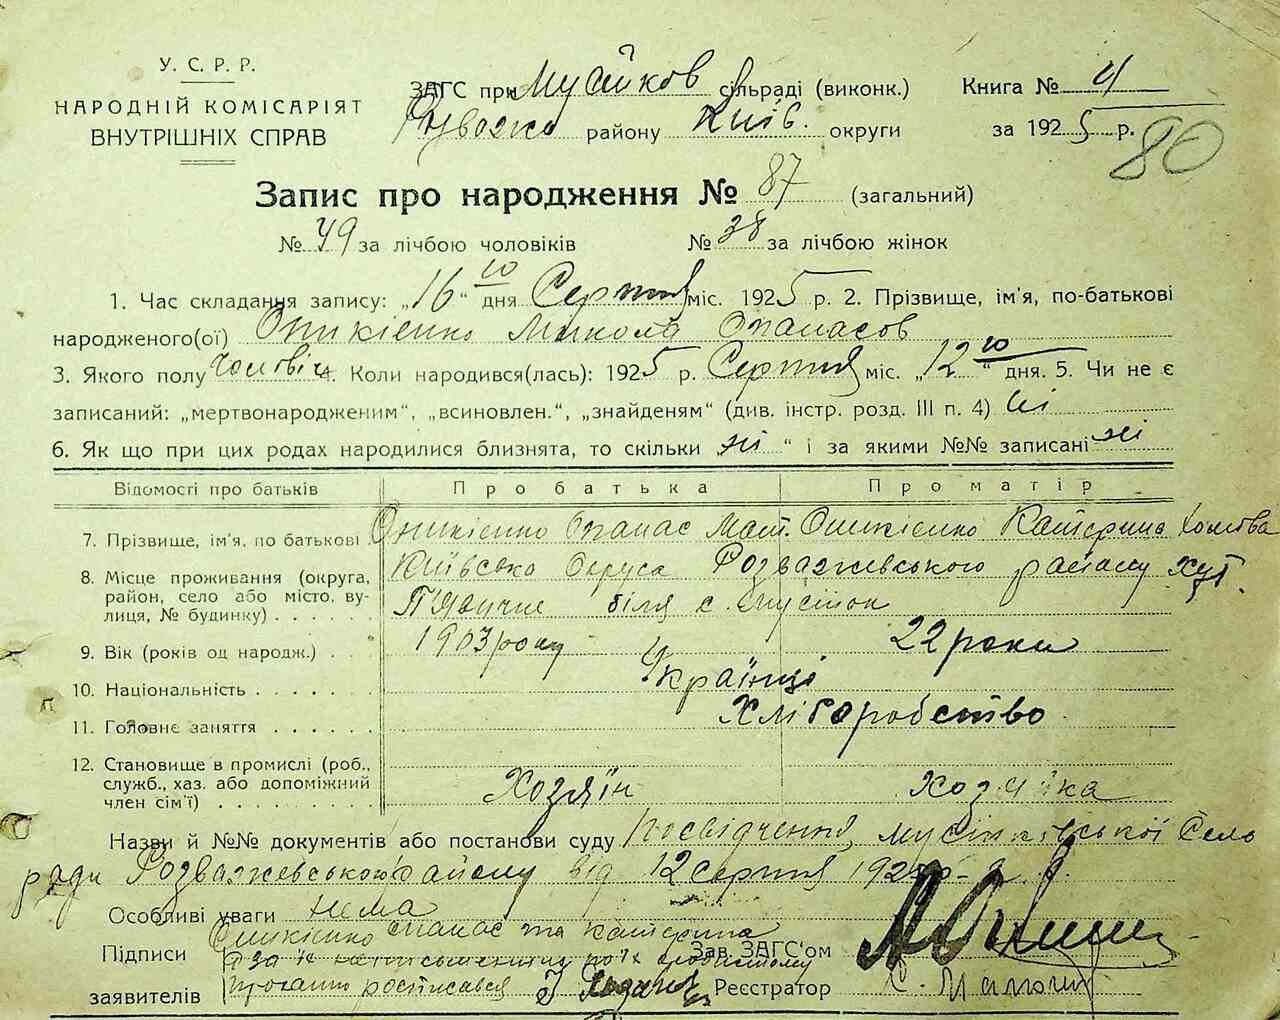 У. С. Р. Р.
НАРОДНІЙ КОМІСАРІЯТ
ВНУТРІШНІХ СПРАВ
ЗАГС при Мусійков сільраді (виконк.)
району Київ. округи
Книга № 4
за 1925 р.
80
Запис про народження № 87 (загальний)
№ 49 за лічбою чоловіків № 38 за лічбою жінок
1. Час складання запису: „16го“ дня Серпня міс. 1925 р. 2. Прізвище, ім'я, по-батькові
народженого(ої) Оникієнко Микола Опанасов
3. Якого полу Чоловіч. 4. Коли народився(лась): 1925 р. Серпня міс. „12го“ дня. 5. Чи не є
записаний: „мертвонародженим“, „всиновлен.“, „знайденям“ (див. інстр. розд. III п. 4) ні
6. Як що при цих родах народилися близнята, то скільки „ні“ і за якими №№ записані ні
Відомості про батьків Про батька Про матір
7. Прізвище, ім'я, по батькові Оникієнко Опанас Оникієнко Катерина Хомова
8. Місце проживання (округа, район, село або місто, вулиця, № будинку) Київсько Округа Розважевського району хут.
біля с.
9. Вік (років од народж.) 1903 року 22 роки
10. Національність Українці
11. Головне заняття Хліборобство
12. Становище в промислі (роб., служб., хаз. або допоміжний член сім'ї) Хозяїн Хозяйка
Назви й №№ документів або постанови суду Посвідчення Мусійківської Село
ради Розважевського району від 12 серпня
Особливі уваги нема
Підписи заявителів Оникієнко Опанас та Катерина
а за їх неписьменних по їх особистому
проханню росписався
Зав. ЗАГС'ом
Реєстратор